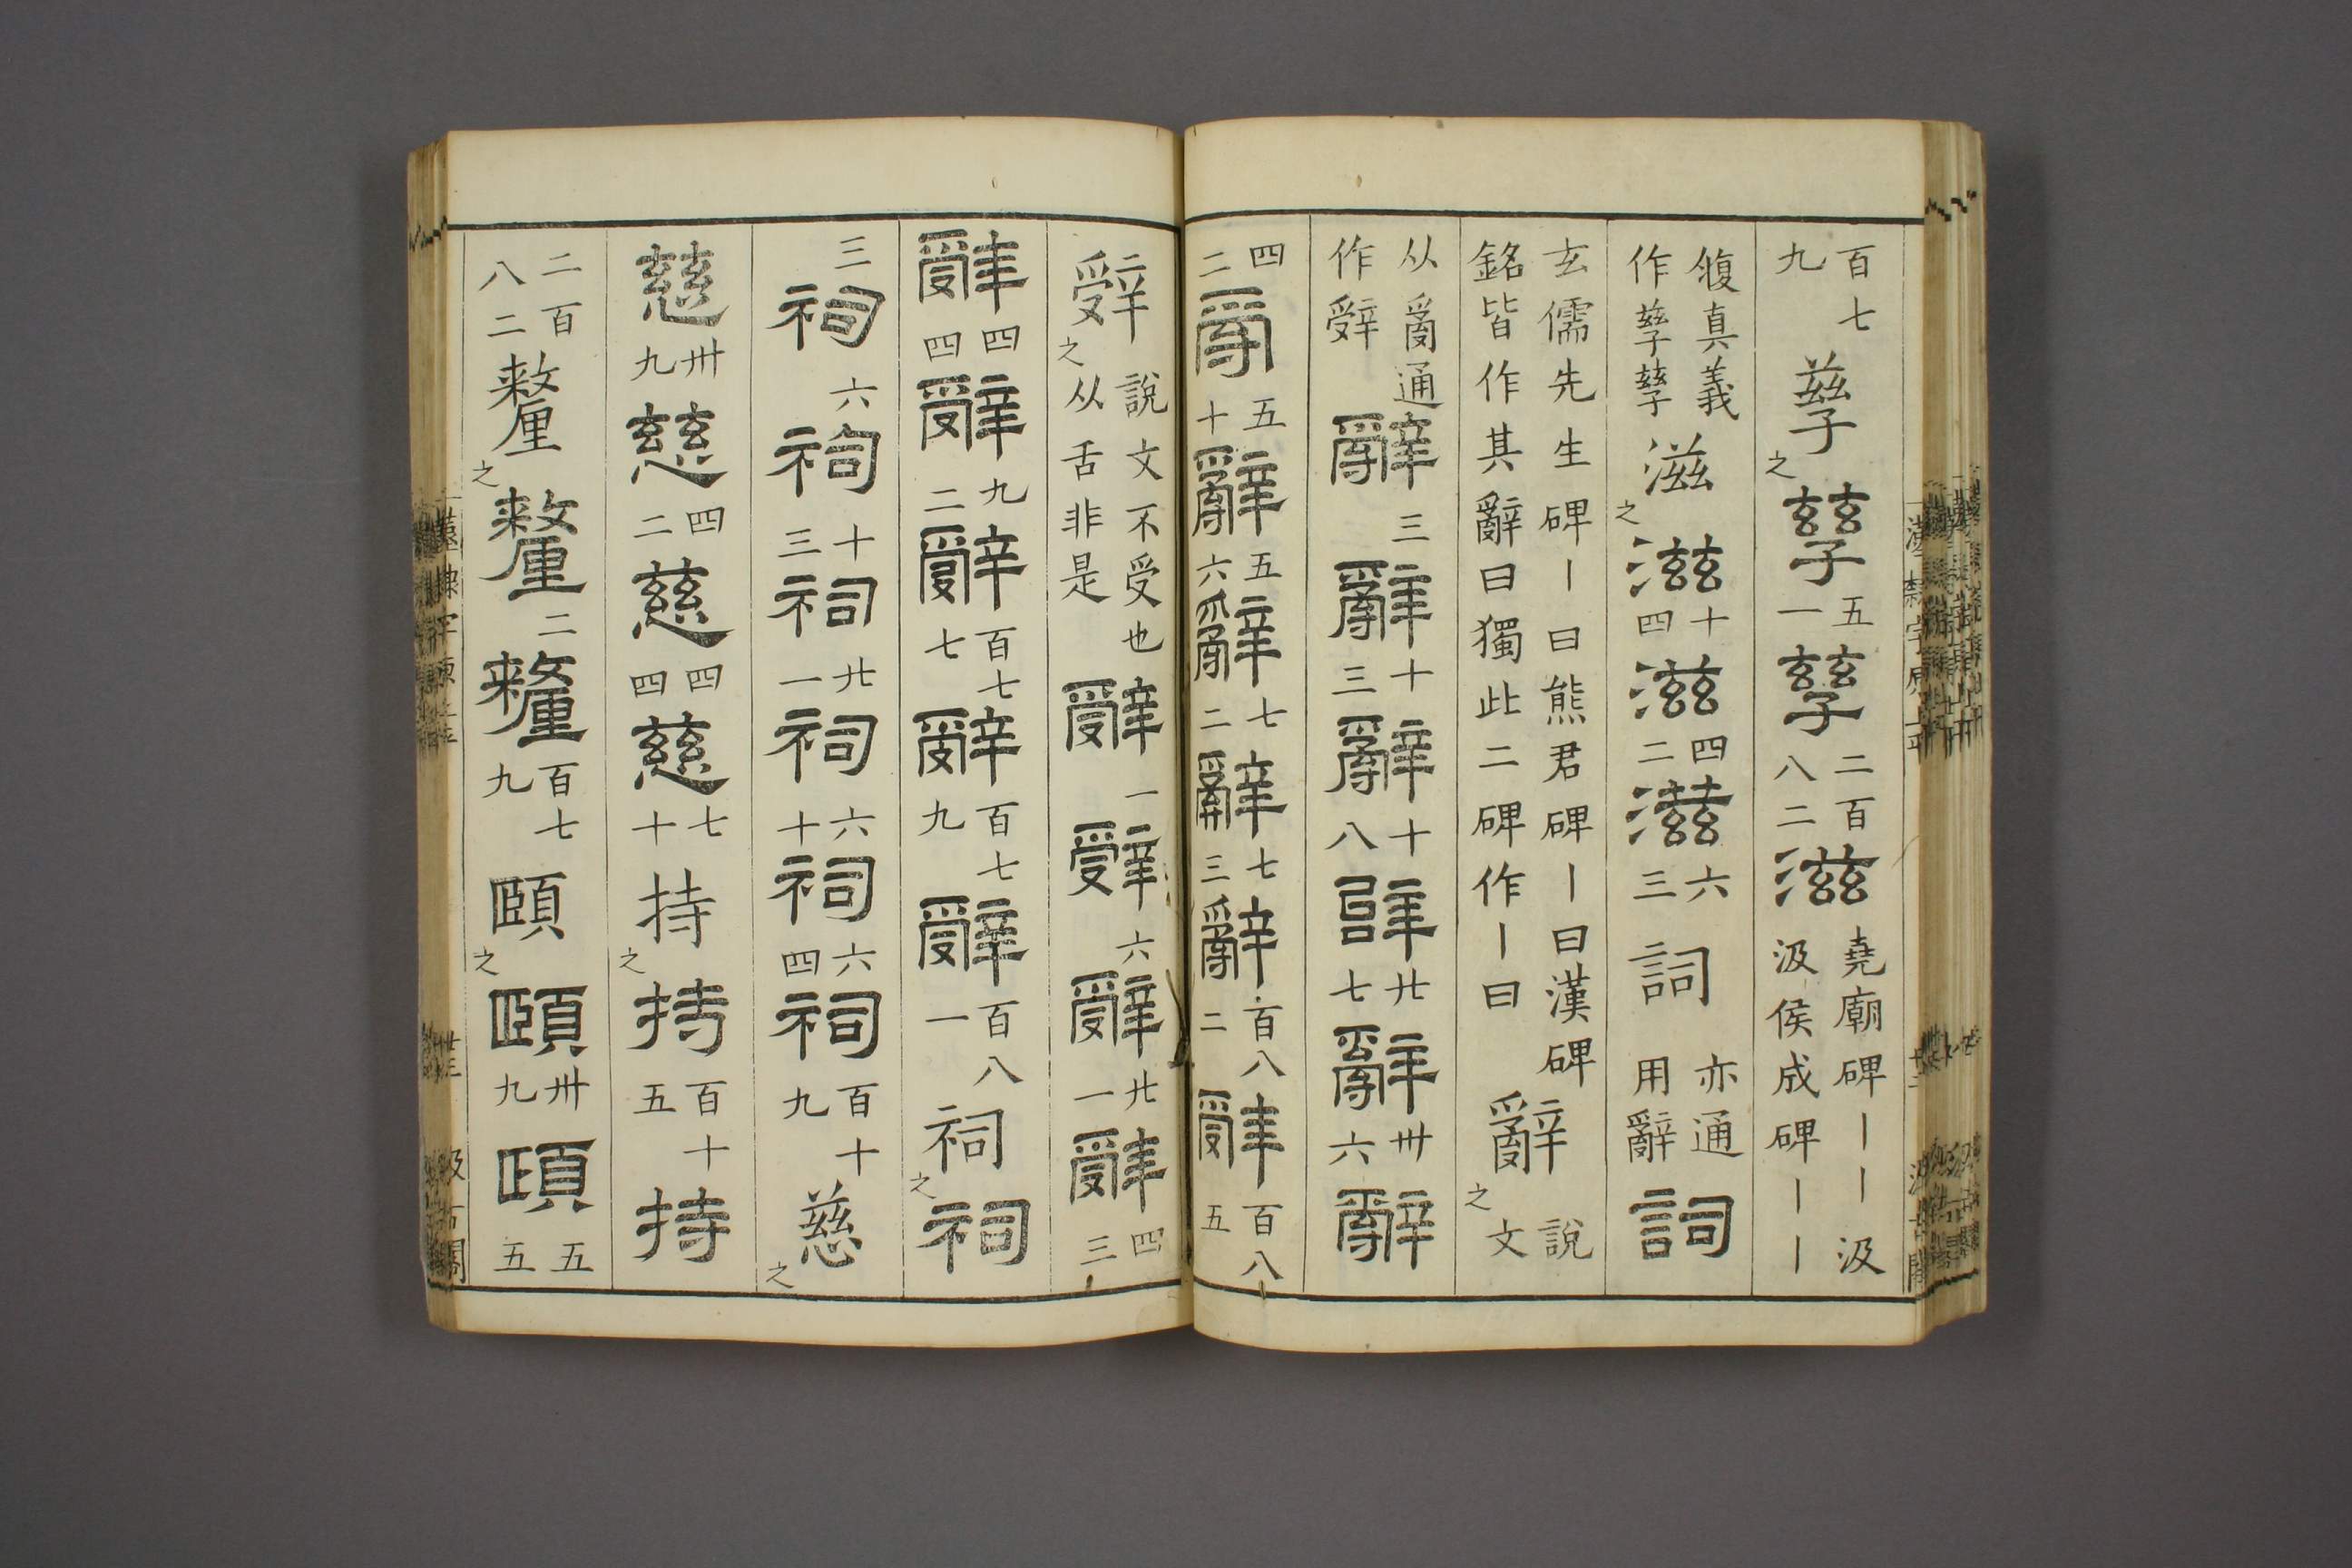 百七九孳之孳五一孳二百八二滋堯廟碑丨丨汲汲侯成碑丨丨
復真義作孳孳滋之滋十四滋四二滋六三詞亦通用辭詞
玄儒先生碑丨曰熊君碑丨曰漢碑銘皆作其辭曰獨此二碑作丨曰辭之說文
从𤔔通作辤辭三辭十三辭十八辭廿七辭卅六辭
四二辭五十辭五六辭七二辭七三辭百八二辭百八五
辤之說文不受也从舌非是辤一辤六辤廿一辤四三
辤四四辤九二辤百七七辤百七九辤百八一祠之祠
三祠六祠十三祠廿一祠六十祠六四祠百十九慈之
慈卅九慈四二慈四四慈七十持之持百十五持
二百八二釐之釐二釐百七九頤之頤卅九頤五五
漢隸字原上平
汲古閣